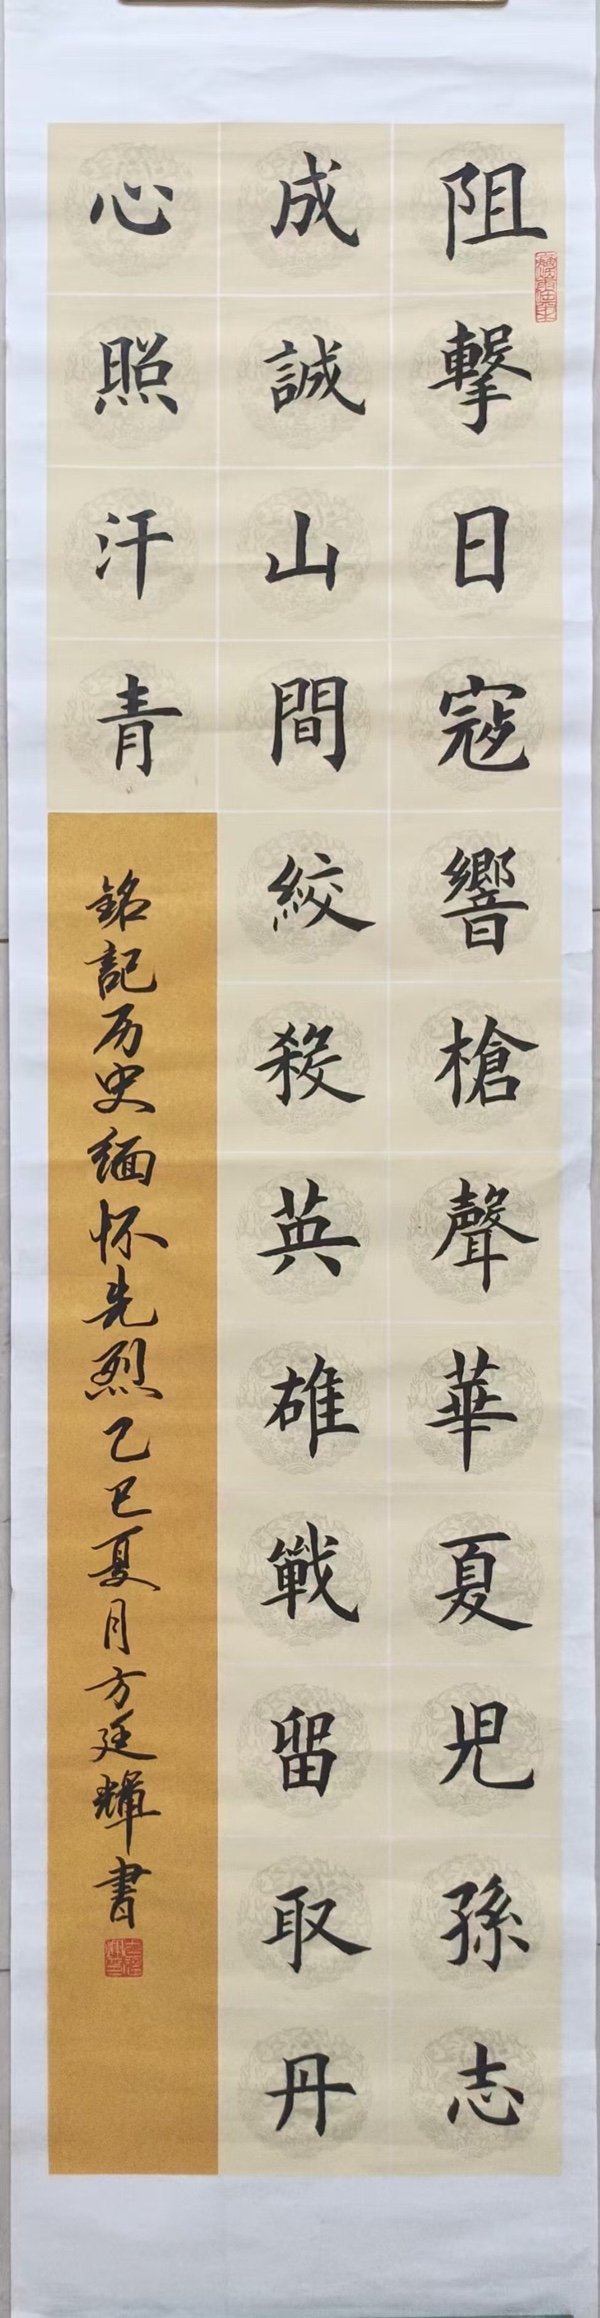 阻擊日寇響槍聲華夏児孫志
成誠山間絞殺英雄戰留取丹
心照汗青
銘記历史缅怀先烈乙巳夏月方廷輝書